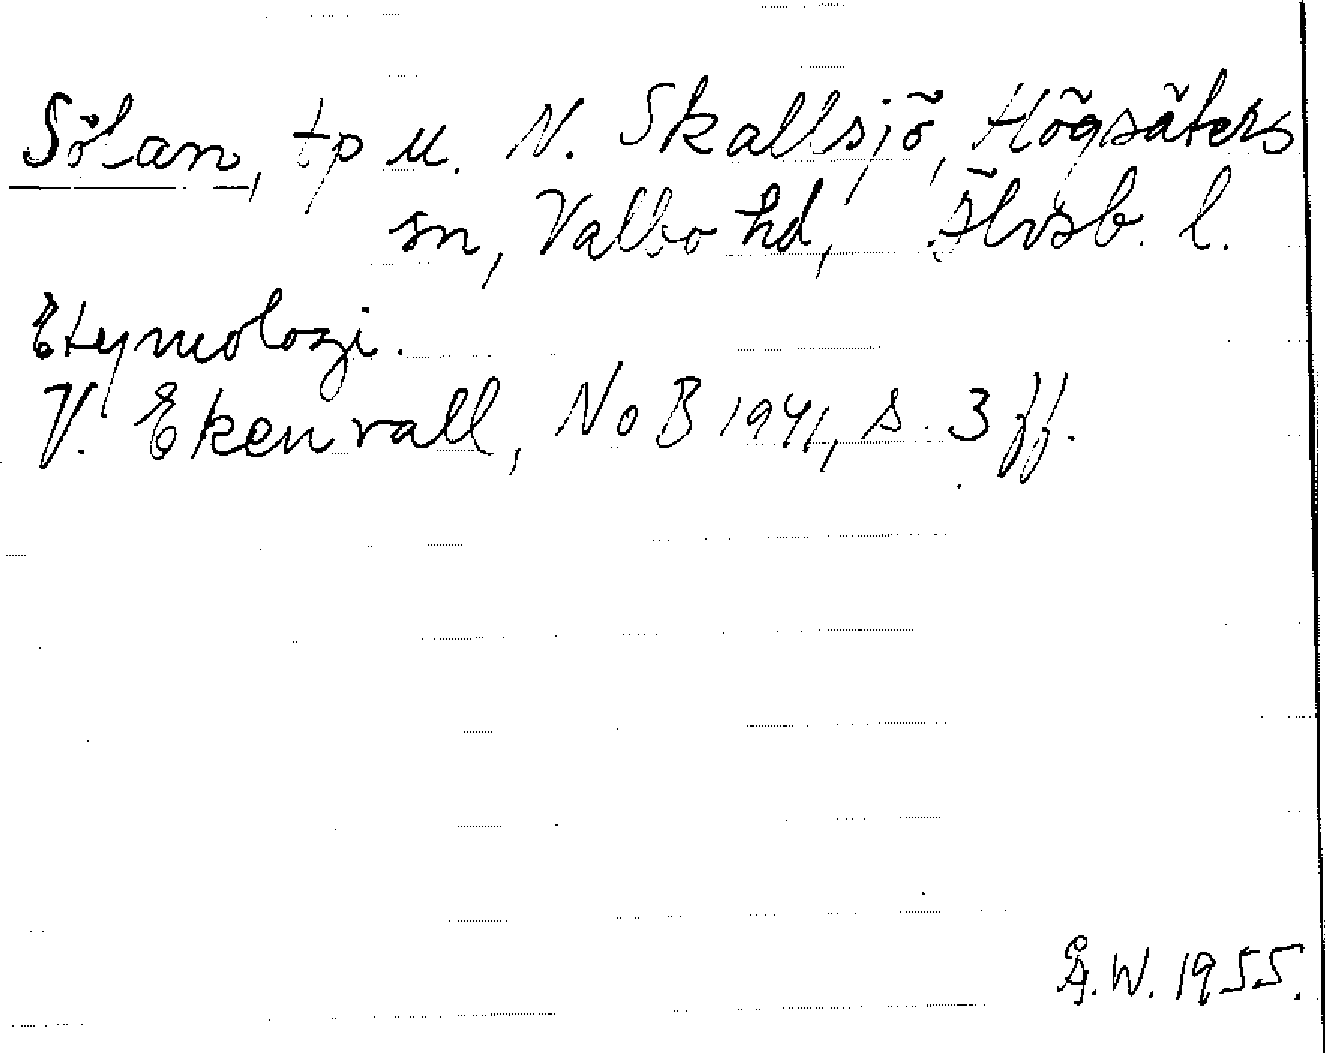 Sölan, tp u. N. Skallsjö, Högsäters
sn, Valbo hd, Älvsb. l.
Etymologi.
V. Ekenvall, NoB 1941, s. 3 ff.
Å.W. 1955.